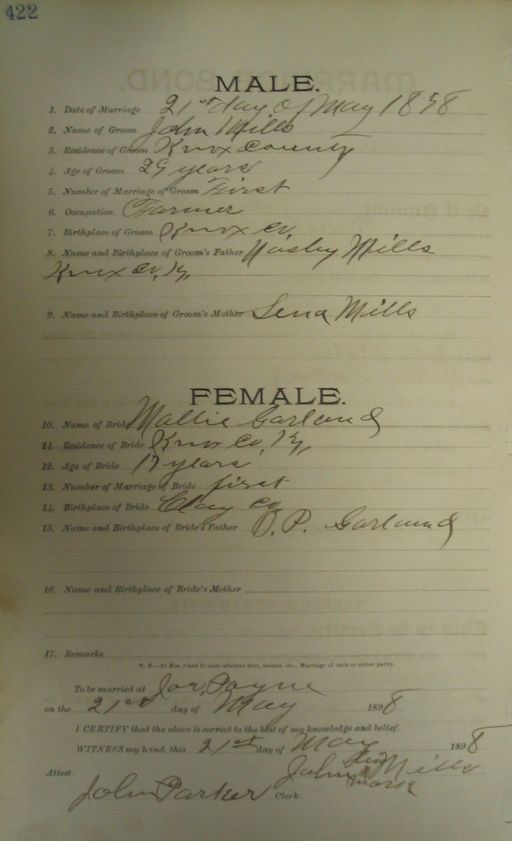 422
MALE.
1. Date of Marriage 21st day of May 1898
2. Name of Groom John Mills
3. Residence of Groom Knox County
4. Age of Groom 29 years
5. Number of Marriage of Groom First
6. Occupation Farmer
7. Birthplace of Groom Knox Co.
8. Name and Birthplace of Groom's Father Mills
Knox Co, Ky,
9. Name and Birthplace of Groom's Mother Lena Mills
FEMALE.
10. Name of Bride Mallie Garland
11. Residence of Bride Knox Co, Ky,
12. Age of Bride 17 years
13. Number of Marriage of Bride first
14. Birthplace of Bride Clay Co
15. Name and Birthplace of Bride's Father P. Garland
16. Name and Birthplace of Bride's Mother
17. Remarks
N. B.—At Nos. 5 and 13 state whether first, second, etc., Marriage of each or either party.
To be married at Payne
on the 21st day of May 1898
I CERTIFY that the above is correct to the best of my knowledge and belief.
WITNESS my hand, this 21st day of May 1898
John his Mills
mark
Attest: John Parker Clerk.